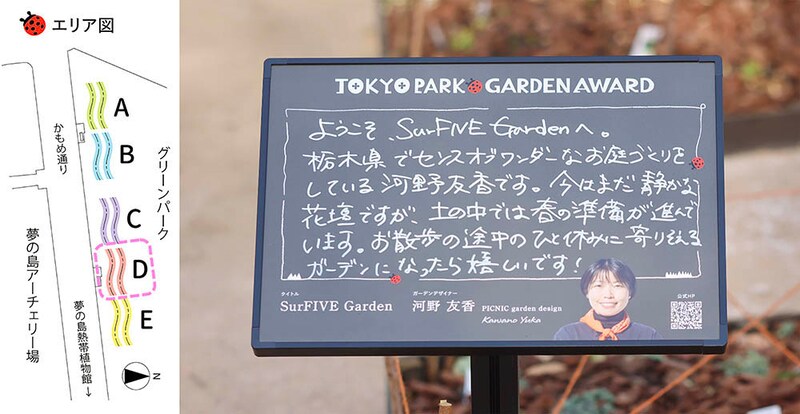 エリア図
A
B
C
D
E
かもめ通り
グリーンパーク
夢の島アーチェリー場
夢の島熱帯植物館→
N
TOKYO PARK GARDEN AWARD
ようこそ、SurFIVE Gardenへ。
栃木県でセンスオブワンダーなお庭づくりを
している河野友香です。今はまだ静かな
花壇ですが、土の中では春の準備が進んで
います。お散歩の途中のひと休みに寄りそえる
ガーデンになったら嬉しいです!
タイトル
SurFIVE Garden
ガーデンデザイナー
河野 友香 PICNIC garden design
Kawano Yuka
公式HP